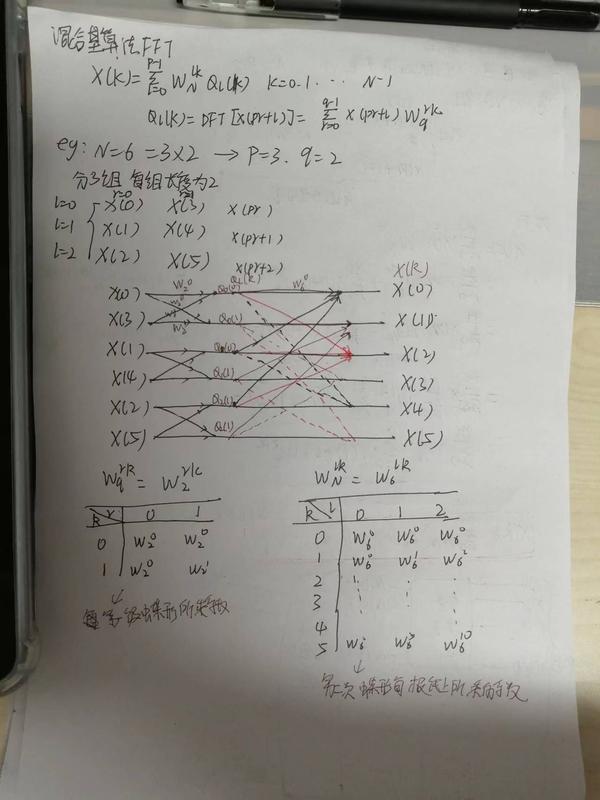 混合基算法FFT
X(k)=Σ_{l=0}^{p-1} W_N^{lk} Q_l(k) k=0.1.… N-1
Q_l(k)=DFT[x(pr+l)]=Σ_{r=0}^{q-1} x(pr+l) W_q^{rk}
eg: N=6=3×2 → P=3. q=2
分3组 每组长度为2
r=0
l=0 x(0) x(3) x(pr)
l=1 x(1) x(4) x(pr+1)
l=2 x(2) x(5) x(pr+2)
X(k)
x(0) W_2^0 Q_0(0) Q_l(k) W_6^0 X(0)
W_2^0
x(3) W_2^0 Q_0(1) X(1)
x(1) Q_1(0) X(2)
x(4) Q_1(1) X(3)
x(2) Q_2(0) X(4)
x(5) Q_2(1) X(5)
W_q^{rk} = W_2^{rk}
k r 0 1
0 W_2^0 W_2^0
1 W_2^0 W_2^1
W_N^{lk} = W_6^{lk}
k l 0 1 2
0 W_6^0 W_6^0 W_6^0
1 W_6^0 W_6^1 W_6^2
2
3
4
5 W_6 W_6^5 W_6^10
↓
蝶形所乘
↓
次蝶形每根线上所乘